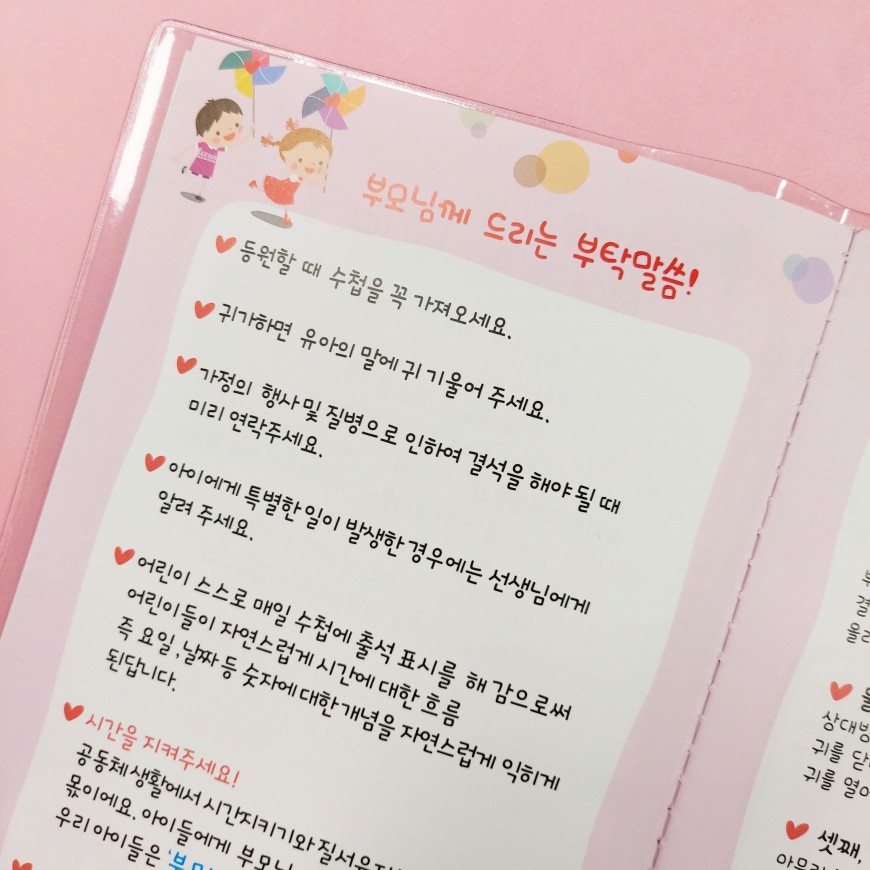 부모님께 드리는 부탁말씀!
등원할 때 수첩을 꼭 가져오세요.
귀가하면 유아의 말에 귀 기울어 주세요.
가정의 행사 및 질병으로 인하여 결석을 해야 될 때
미리 연락주세요.
아이에게 특별한 일이 발생한 경우에는 선생님에게
알려 주세요.
어린이 스스로 매일 수첩에 출석 표시를 해 감으로써
어린이들이 자연스럽게 시간에 대한 흐름
즉 요일, 날짜 등 숫자에 대한 개념을 자연스럽게 익히게
된답니다.
시간을 지켜주세요!
공동체 생활에서 시간지키기와 질서유
몫이에요. 아이들에게 부모님
우리 아이들은 '부모
상대방
귀를 닫
귀를 열어
셋째,